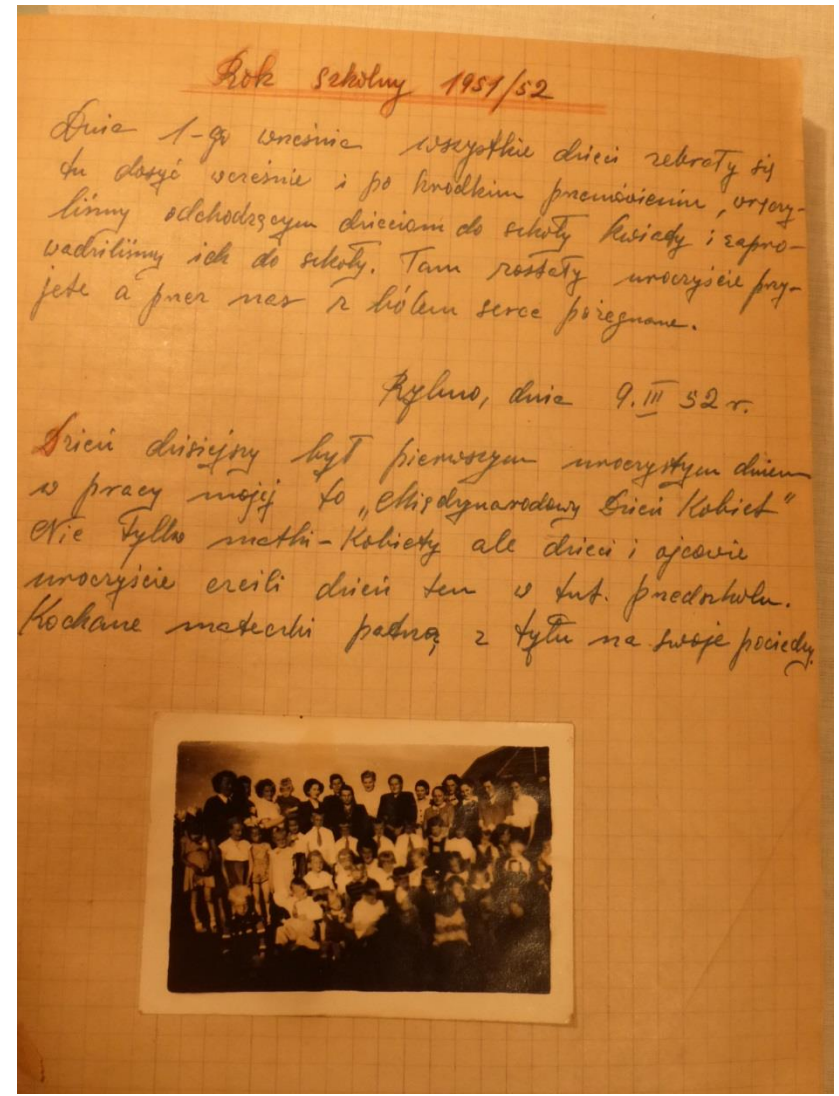 Rok szkolny 1951/52
Dnia 1-go września wszystkie dzieci zebrały się
tu dosyć wcześnie i po krótkim przemówieniu, wręczy-
liśmy odchodzącym dzieciom do szkoły kwiaty i zapro-
wadziliśmy ich do szkoły. Tam zostały uroczyście przy-
jęte a przez nas z bólem serca pożegnane.
Rybno, dnia 9.III 52 r.
Dzień dzisiejszy był pierwszym uroczystym dniem
w pracy mojej to „Międzynarodowy Dzień Kobiet"
Nie tylko matki-Kobiety ale dzieci i ojcowie
uroczyście czcili dzień ten w tut. przedszkolu.
Kochane mateczki patrzą z tyłu na swoje pociechy.